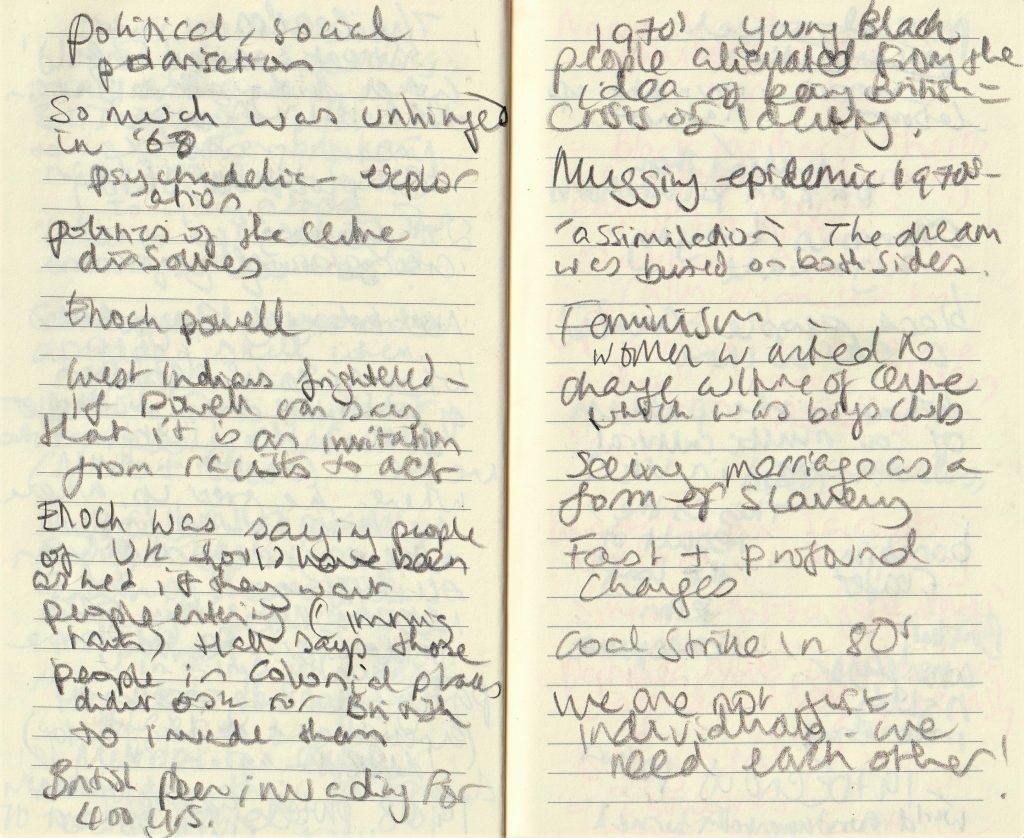 political, social
polarisation
So much was unhinged
in '68
psychadelic - explor
ation
politics of the centre
dissolves
Enoch powell
West Indians frightened -
if Powell can say
that it is an invitation
from racists to act
Enoch was saying people
of UK should have been
asked if they want
people entering (immig
rants) Hall says those
people in Colonial places
didn't ask for British
to invade them
British been invading for
400 yrs.
1970s young Black
people alienated from the
idea of being British =
Crisis of Identity.
Mugging epidemic 1970s -
'assimilation' The dream
was buried on both sides.
Feminism
women wanted to
change culture of centre
which was boys club
seeing marriage as a
form of Slavery
Fast + profound
changes
Coal Strike in 80s
we are not just
individuals - we
need each other!